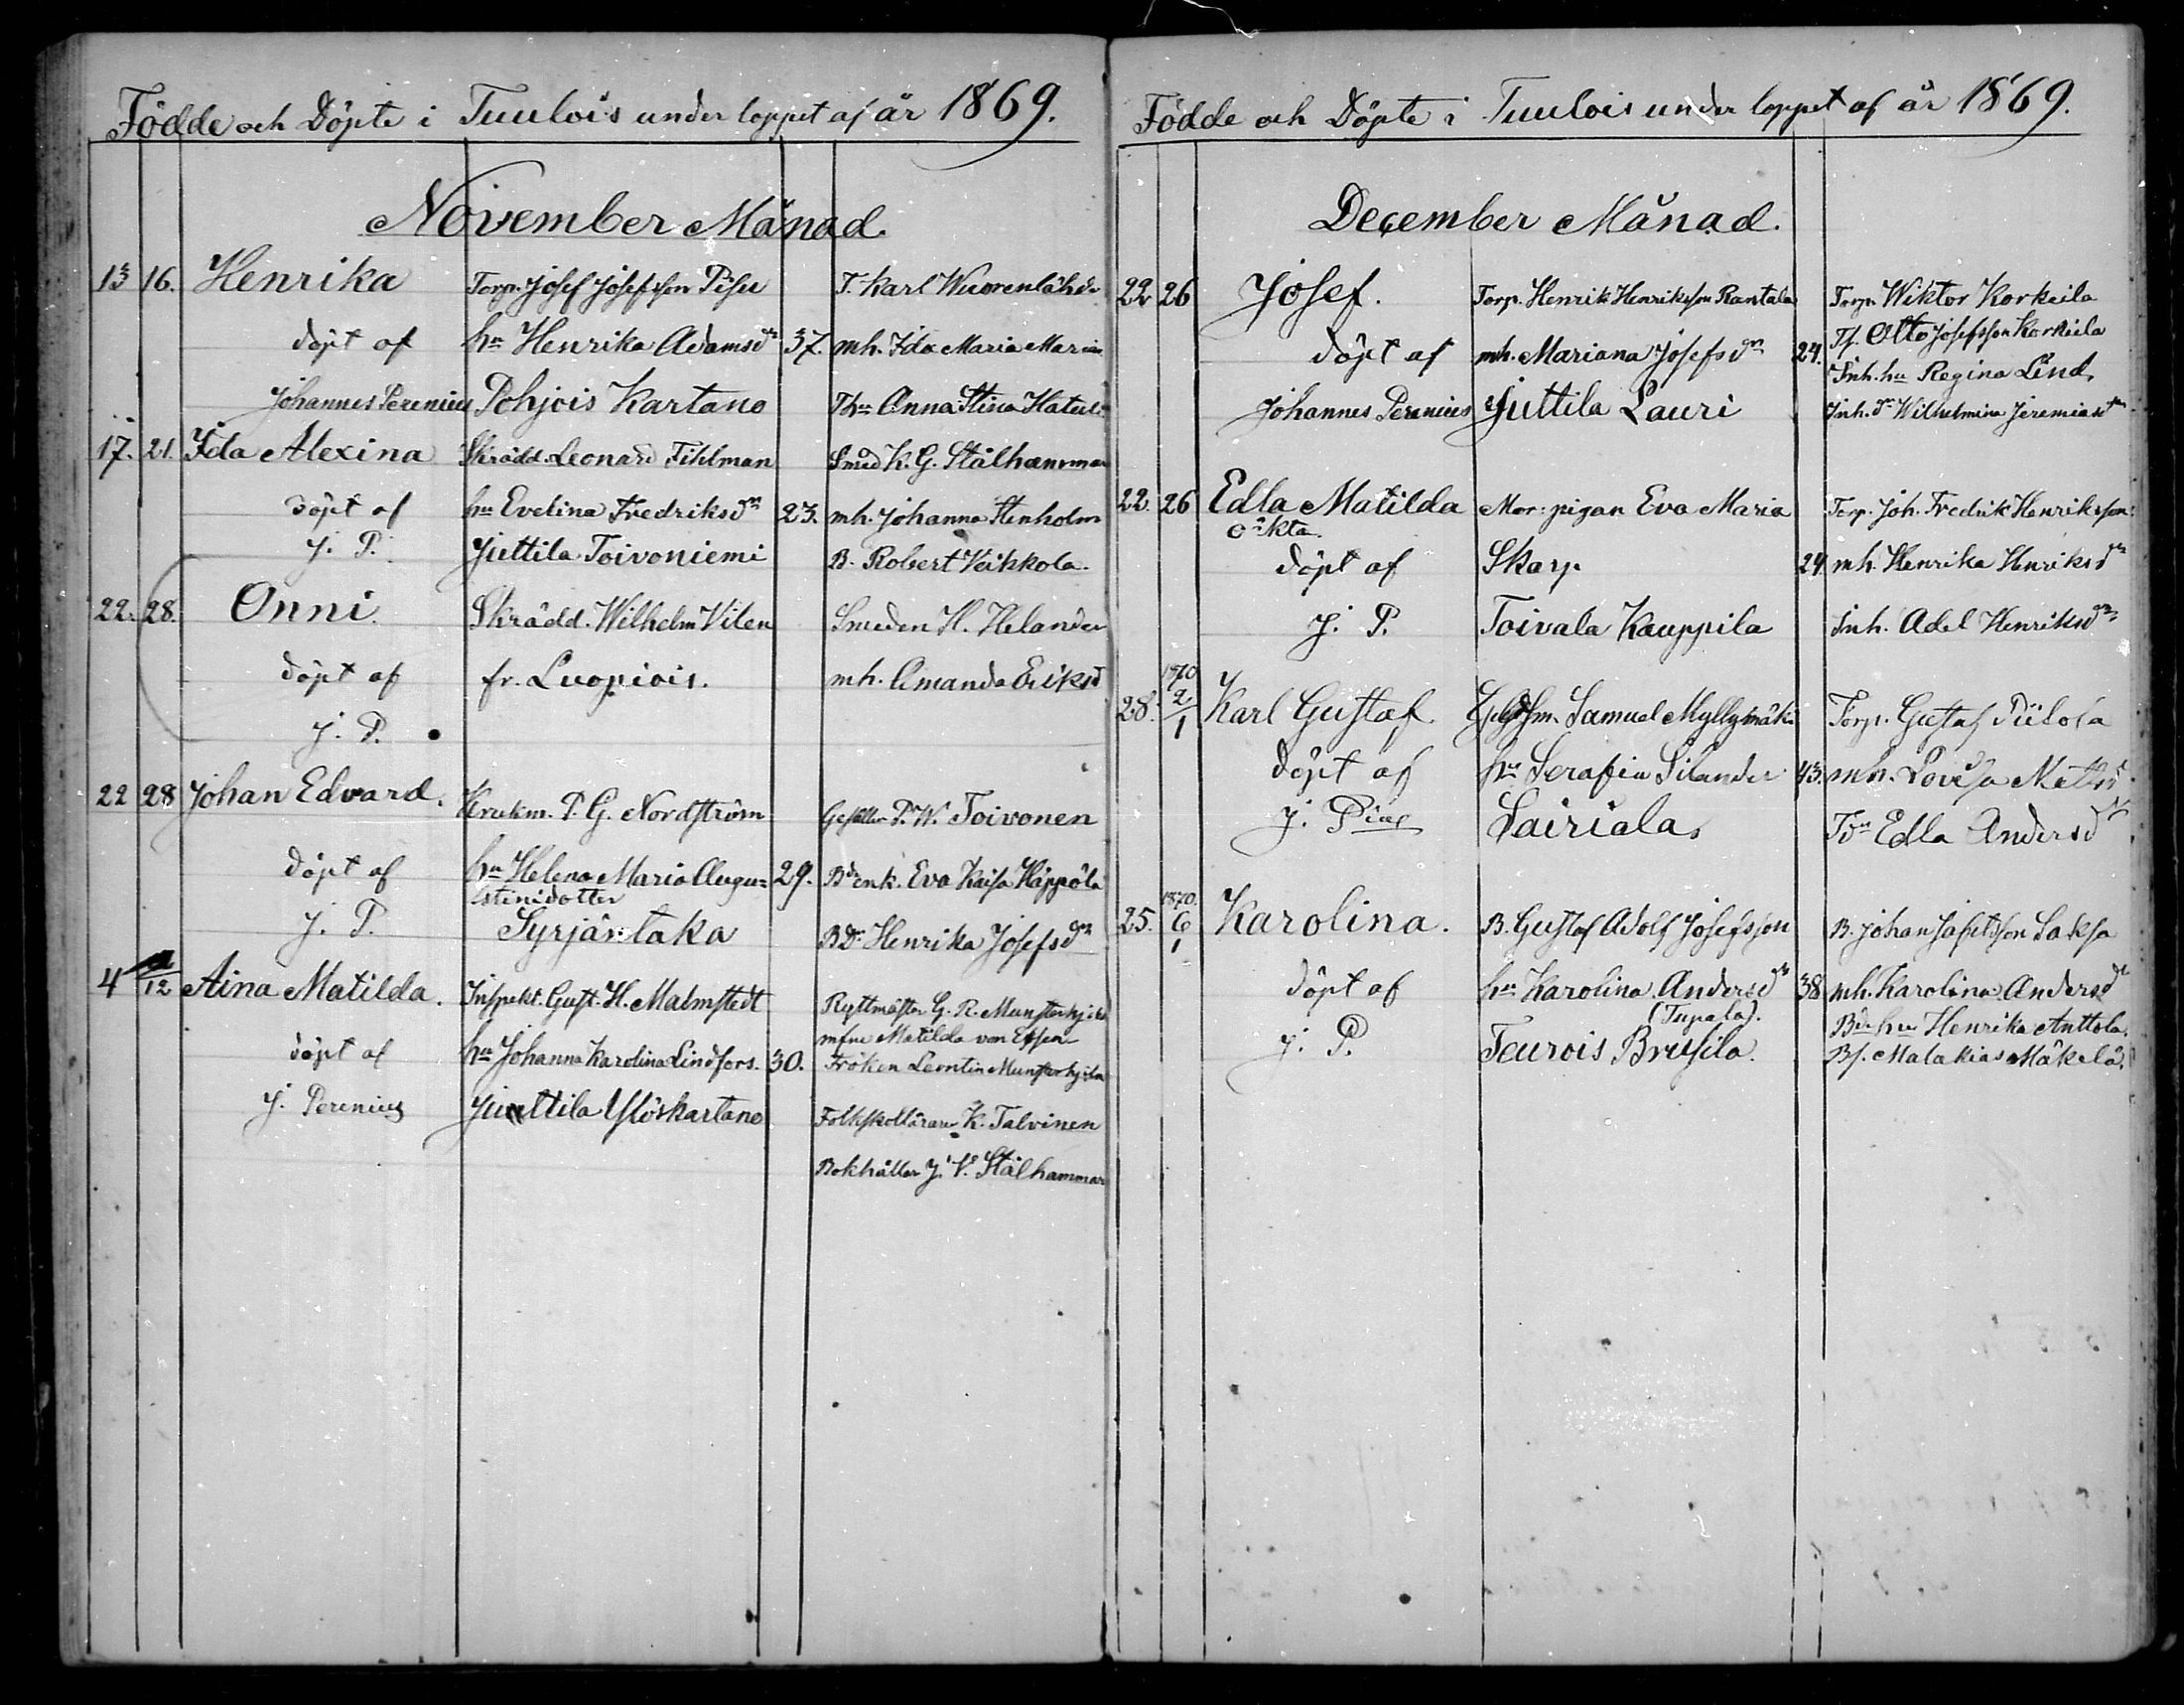 Födde och Döpte i Tuulois under loppet af år 1869.
November Månad.
13 16. Henrika Torp. Josef Josefsson Pisu T. Karl Wuorenlähde
döpt af hu Henrika Adamsdr 37. mh. Ida Maria
Johannes Perenius Pohjois Kartano Thu Anna Stina
17. 21. Ida Alexina Skrädd. Leonard Fihlman Smed K. G. Stålhammar
döpt af hu Evelina Fredriksdr 23. mh. Johanna Stenholm
J. P. Juttila Toivoniemi B. Robert Veikkola.
22. 28. Onni. Skrädd. Wilhelm Vilen Smeden H. Helander
döpt af fr. Luopiois. mh. Amanda Eriksd
J. P.
22 28 Johan Edvard. Krukm. P. G. Nordström Gesällen P. W. Toivonen
döpt af hu Helena Maria Augu= 29. Bdenk. Eva Kaisa Häppölä
stinidotter
J. P. Syrjäntaka BDr Henrika Josefsdr
4 /12 Aina Matilda. Inspekt. Gust. H. Malmstedt Ryttmästar G. R. Munsterhjelm
mfru Matilda von Essen
döpt af hu Johanna Karolina Lindfors. 30. Fröken Leontin Munsterhjelm
J. Perenius Juttila Yliskartano Folkskollärare K. Talvinen
Bokhållar J. V. Stålhammar
Födde och Döpte i Tuulois under loppet af år 1869.
December Månad.
22 26 Josef. Torp. Henrik Henriksson Rantala Torp. Wiktor Korkeila
Ts. Otto Josefsson Korkeila
döpt af mh. Mariana Josefsdr 24. Inh. hu Regina Lind,
Johannes Perenius Juttila Lauri Inh. dr Wilhelmina Jeremiasdr
22. 26 Edla Matilda Mor: pigan Eva Maria Torp. Joh. Fredrik Henriksson
oäkta.
döpt af Skarp 24. mh. Henrika Henriksdr
J. P. Toivala Kauppila Inh. Adel Henriksdr
1870
28. 2/1 Karl Gustaf. Samuel Myllymäki Torp. Gustaf Piilola
döpt af hu Serafia Silander 43. mh. Lovisa Mattsd
J. Pius Sairiala, Tdr Edla Andersdr
1870.
25. 6/1 Karolina. B. Gustaf Adolf Josefsson B. Johan Josefsson Saksa
döpt af hu Karolina Andersdr 38 mh. Karolina Andersdr
(Tupala). Bde hu Henrika Anttola.
J. P. Teurois Brusila. Bs. Malakias Mäkelä.